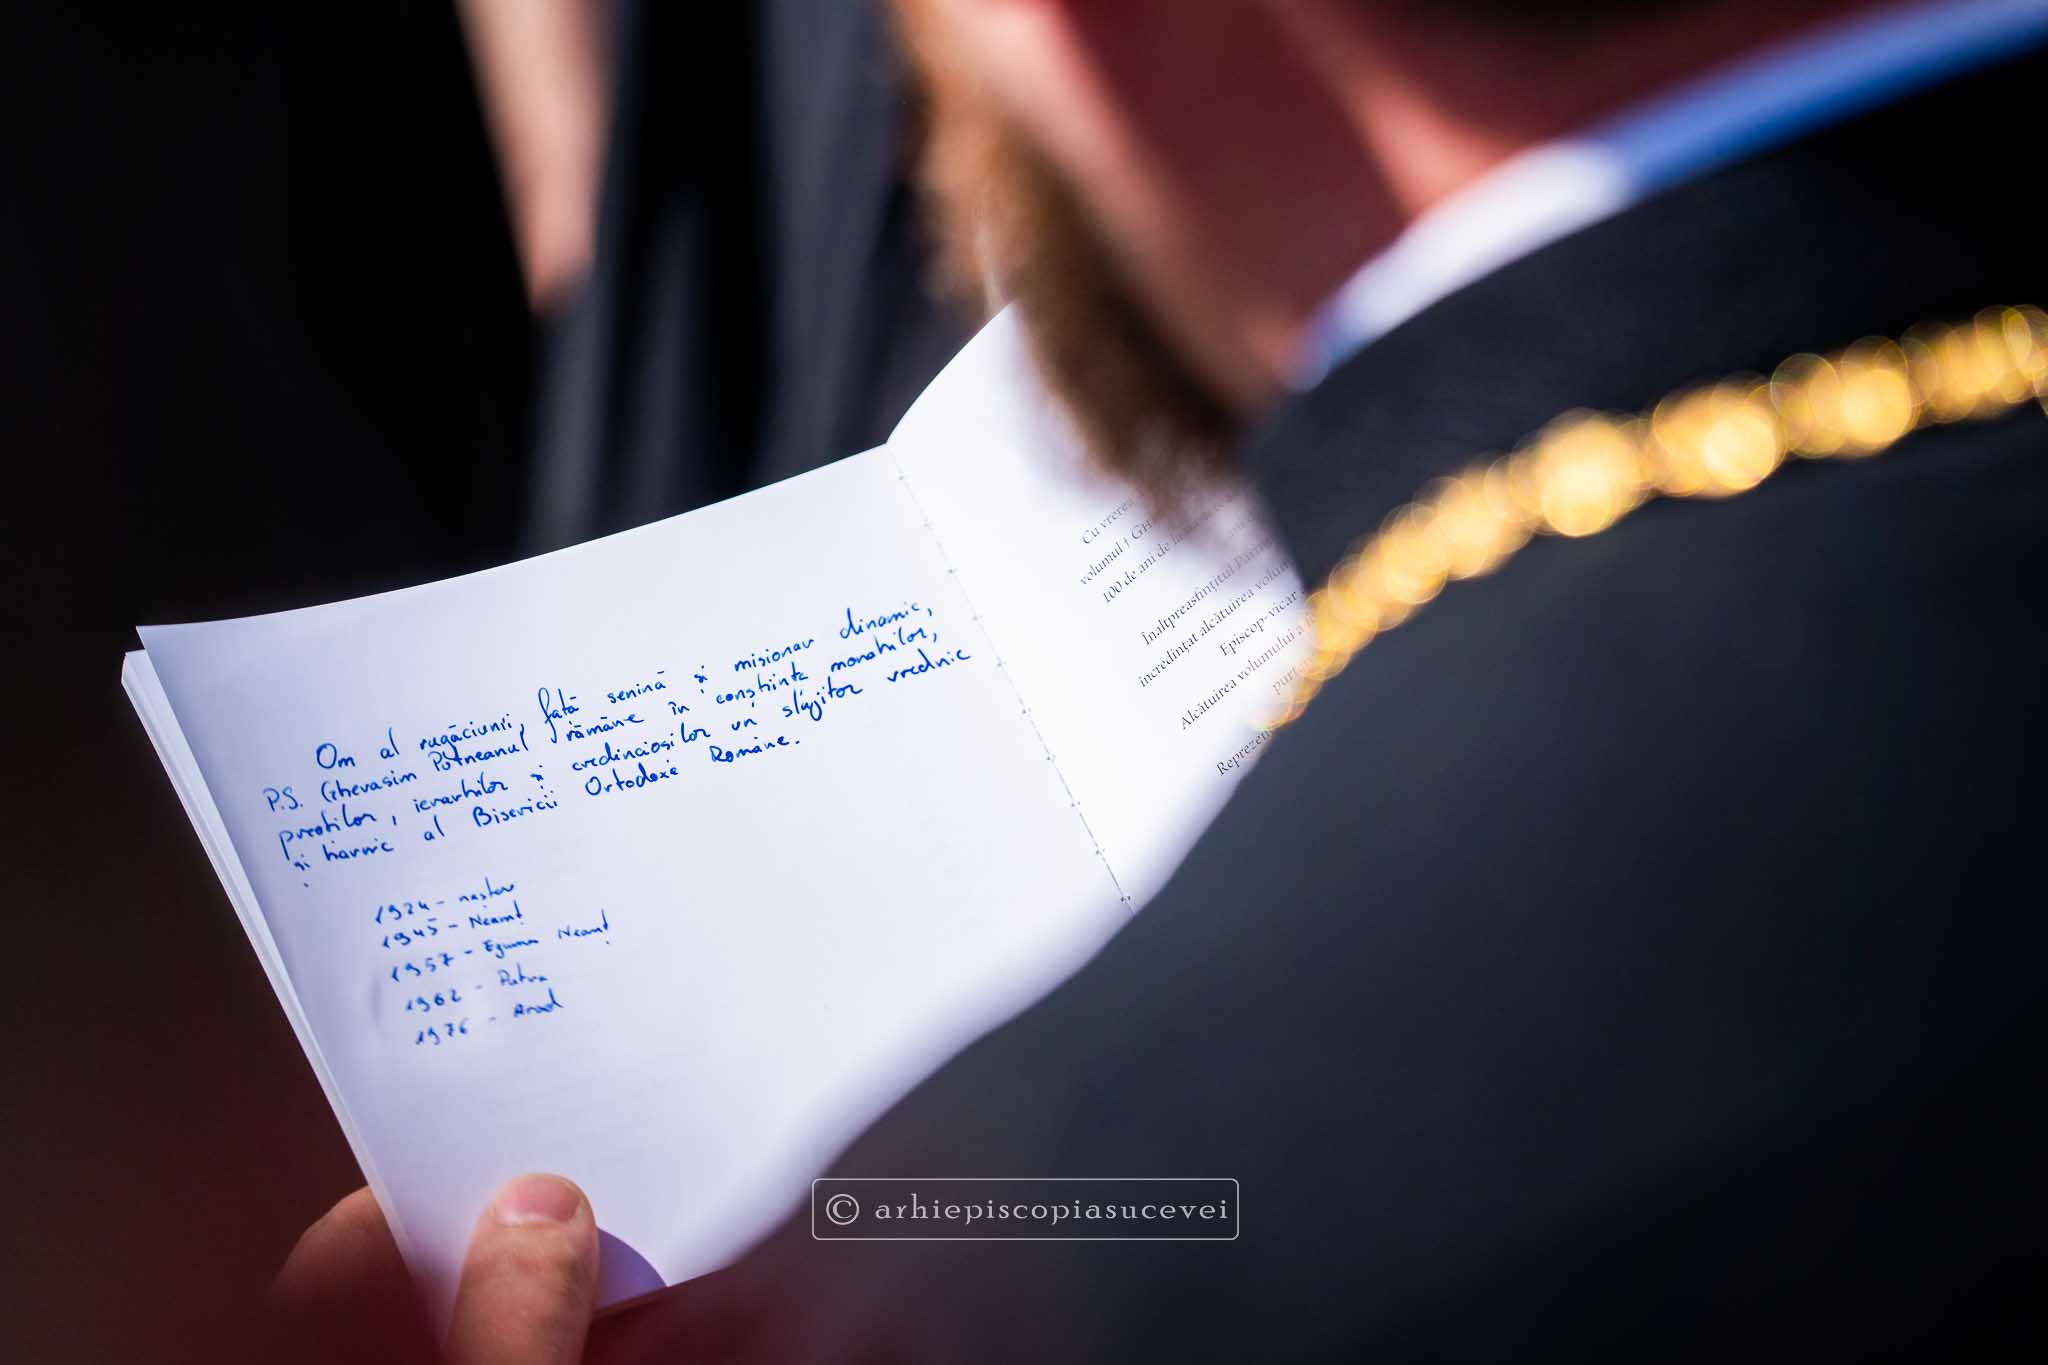 Om al rugăciunii, față senină și misionar dinamic,
P.S. Gherasim Putneanul rămâne în conștiința monahilor,
preoților, ierarhilor și credincioșilor un slujitor vrednic
și harnic al Bisericii Ortodoxe Române.
1924 - naștere
1945 - Neamț
1957 - Egumen Neamț
1962 - Putna
1976 - Arad
Cu
volumul † GH
100 de ani de la
Înaltpreasfințitul
încredințat alcătuirea
Episcop-vicar
Alcătuirea volumului a
© arhiepiscopiasucevei